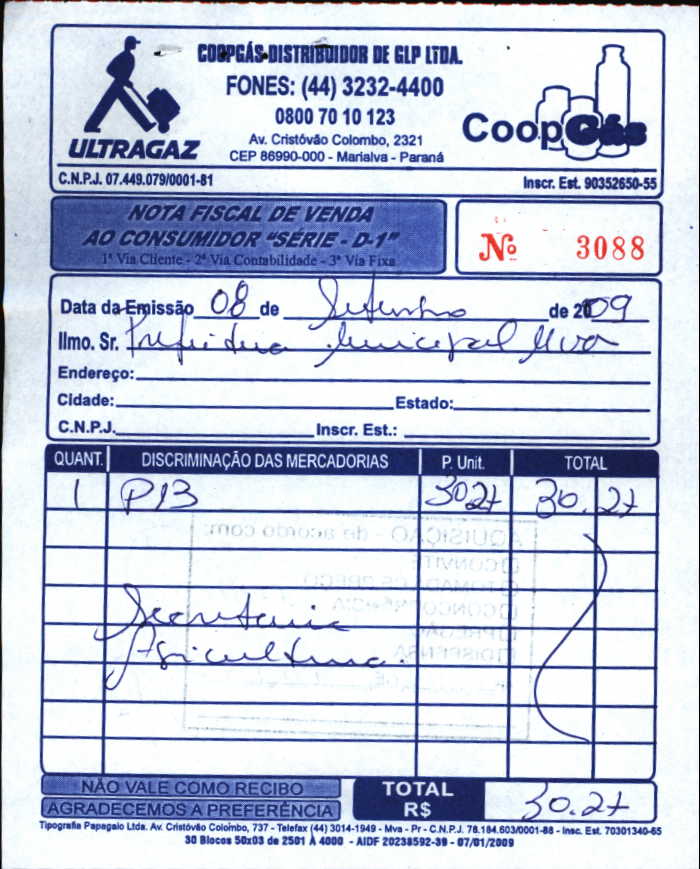 COOPGÁS-DISTRIBUIDOR DE GLP LTDA.
FONES: (44) 3232-4400
0800 70 10 123
Av. Cristóvão Colombo, 2321
CEP 86990-000 - Marialva - Paraná
ULTRAGAZ
CoopGás
C.N.P.J. 07.449.079/0001-81 Inscr. Est. 90352650-55
NOTA FISCAL DE VENDA
AO CONSUMIDOR "SÉRIE - D-1"
1ª Via Cliente - 2ª Via Contabilidade - 3ª Via Fixa
Nº 3088
Data da Emissão 08 de Setembro de 2009
Ilmo. Sr. Prefeitura Municipal Mva
Endereço:
Cidade: Estado:
C.N.P.J. Inscr. Est.:
QUANT. DISCRIMINAÇÃO DAS MERCADORIAS P. Unit. TOTAL
1 P13 3027 30.27
AQUISIÇÃO - de acordo com:
CONVITE
TOMADA DE PREÇO
CONCORRÊNCIA
PREGÃO
DISPENSA
Secretaria
Agricultura.
NÃO VALE COMO RECIBO
AGRADECEMOS A PREFERÊNCIA
TOTAL R$ 30.27
Tipografia Papagaio Ltda. Av. Cristóvão Colombo, 737 - Telefax (44) 3014-1949 - Mva - Pr - C.N.P.J. 78.184.603/0001-88 - Insc. Est. 70301340-65
30 Blocos 50x03 de 2501 À 4000 - AIDF 20238592-39 - 07/01/2009